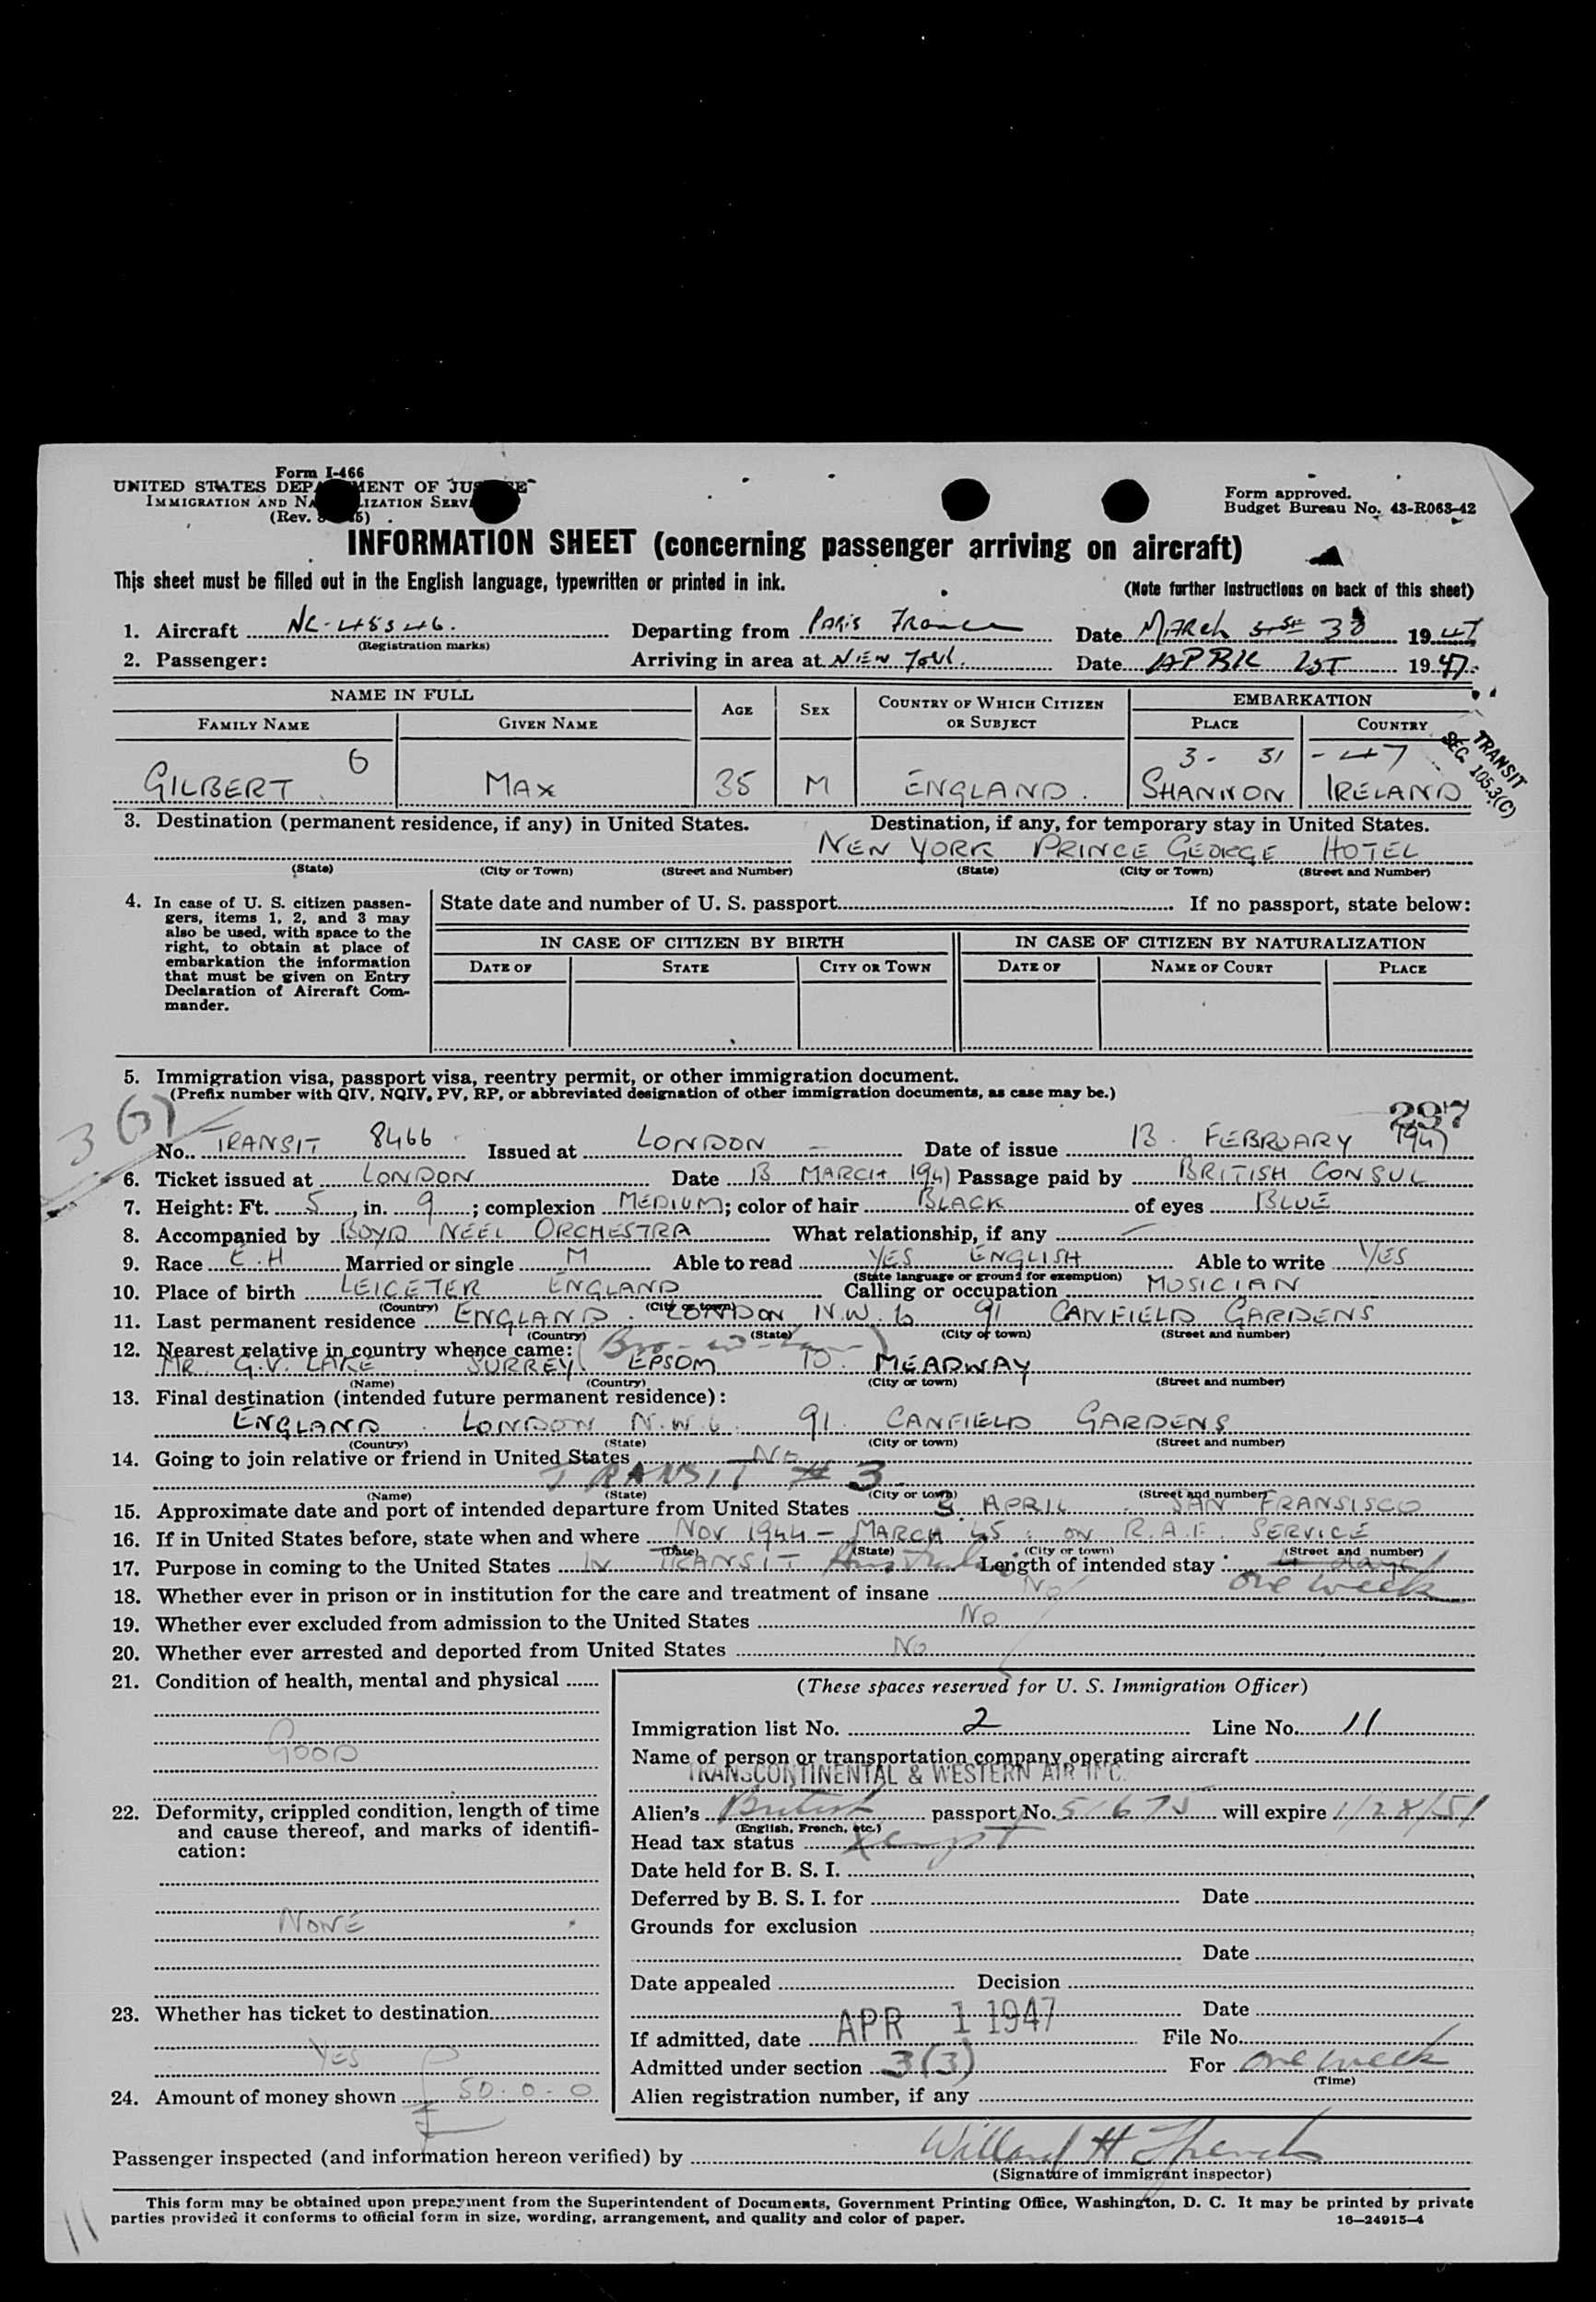 Form I-466
UNITED STATES DEPARTMENT OF JUSTICE
IMMIGRATION AND NATURALIZATION SERVICE
(Rev.
Form approved.
Budget Bureau No. 43-R063-42
INFORMATION SHEET (concerning passenger arriving on aircraft)
This sheet must be filled out in the English language, typewritten or printed in ink.
(Note further instructions on back of this sheet)
1. Aircraft NC-45346. Departing from PARIS France Date MARCH 1947
(Registration marks)
2. Passenger: Arriving in area at NEW York. Date APRIL 1ST 1947.
NAME IN FULL AGE SEX COUNTRY OF WHICH CITIZEN OR SUBJECT EMBARKATION
FAMILY NAME GIVEN NAME PLACE COUNTRY
6 3 - 31 - 47
GILBERT MAX 35 M ENGLAND. SHANNON IRELAND
TRANSIT
SEC. 105.3(C)
3. Destination (permanent residence, if any) in United States. Destination, if any, for temporary stay in United States.
NEW YORK PRINCE GEORGE HOTEL
(State) (City or Town) (Street and Number) (State) (City or Town) (Street and Number)
4. In case of U. S. citizen passengers, items 1, 2, and 3 may also be used, with space to the right, to obtain at place of embarkation the information that must be given on Entry Declaration of Aircraft Commander.
State date and number of U. S. passport If no passport, state below:
IN CASE OF CITIZEN BY BIRTH IN CASE OF CITIZEN BY NATURALIZATION
DATE OF STATE CITY OR TOWN DATE OF NAME OF COURT PLACE
5. Immigration visa, passport visa, reentry permit, or other immigration document.
(Prefix number with QIV, NQIV, PV, RP, or abbreviated designation of other immigration documents, as case may be.)
297
3 (3)
No. TRANSIT 8466 Issued at LONDON - Date of issue 13. FEBRUARY 1947
6. Ticket issued at LONDON Date 13 MARCH 1947 Passage paid by BRITISH CONSUL
7. Height: Ft. 5, in. 9; complexion MEDIUM; color of hair BLACK of eyes BLUE
8. Accompanied by BOYD NEEL ORCHESTRA What relationship, if any -
9. Race E.H Married or single M Able to read YES ENGLISH Able to write YES
(State language or ground for exemption)
10. Place of birth LEICETER ENGLAND Calling or occupation MUSICIAN
(Country) (City or town)
11. Last permanent residence ENGLAND. LONDON N.W.6 91 CANFIELD GARDENS
(Country) (State) (City or town) (Street and number)
12. Nearest relative in country whence came: (Bro-in-law)
MR. G.V. LAKE SURREY. EPSOM MEADWAY
(Name) (Country) (City or town) (Street and number)
13. Final destination (intended future permanent residence):
ENGLAND. LONDON N.W.6. 91. CANFIELD GARDENS
(Country) (State) (City or town) (Street and number)
14. Going to join relative or friend in United States No
TRANSIT # 3
(Name) (State) (City or town) (Street and number)
15. Approximate date and port of intended departure from United States APRIL. SAN FRANSISCO
16. If in United States before, state when and where NOV 1944 - MARCH 45: ON R.A.F. SERVICE
(Date) (State) (City or town) (Street and number)
17. Purpose in coming to the United States IN TRANSIT Australia Length of intended stay 4 days
one week
18. Whether ever in prison or in institution for the care and treatment of insane No
19. Whether ever excluded from admission to the United States No
20. Whether ever arrested and deported from United States No
21. Condition of health, mental and physical
GOOD
22. Deformity, crippled condition, length of time and cause thereof, and marks of identification:
NONE
23. Whether has ticket to destination
YES
24. Amount of money shown £ 50-0-0
(These spaces reserved for U. S. Immigration Officer)
Immigration list No. 2 Line No. 11
Name of person or transportation company operating aircraft
TRANSCONTINENTAL & WESTERN AIR INC.
Alien's British passport No. will expire 1/28/51
(English, French, etc.)
Head tax status
Date held for B. S. I.
Deferred by B. S. I. for Date
Grounds for exclusion
Date
Date appealed Decision
Date
If admitted, date APR 1 1947 File No.
Admitted under section 3(3) For one week
(Time)
Alien registration number, if any
Passenger inspected (and information hereon verified) by Willard H
(Signature of immigrant inspector)
This form may be obtained upon prepayment from the Superintendent of Documents, Government Printing Office, Washington, D. C. It may be printed by private
parties provided it conforms to official form in size, wording, arrangement, and quality and color of paper.
16-24915-4
11